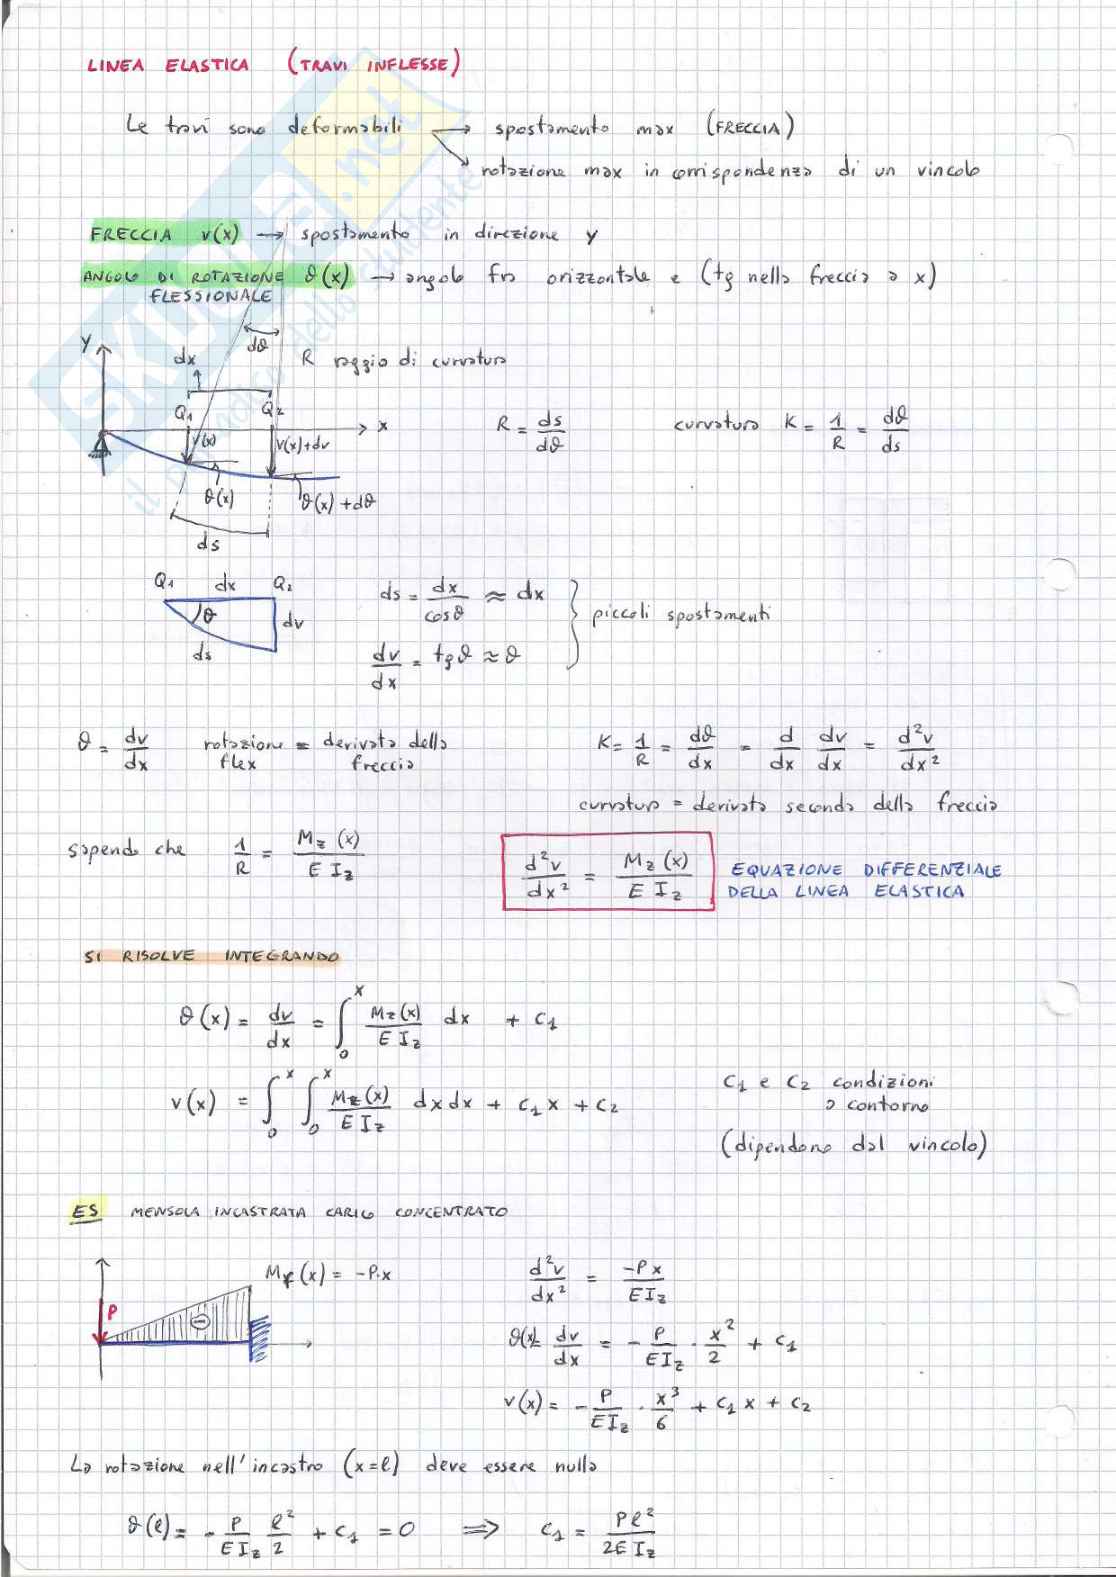 LINEA ELASTICA (TRAVI INFLESSE)
Le travi sono deformabili → spostamento max (FRECCIA)
↘ rotazione max in corrispondenza di un vincolo
FRECCIA v(x) → spostamento in direzione y
ANGOLO DI ROTAZIONE ϑ(x) → angolo fra orizzontale e (tg nella freccia a x)
FLESSIONALE
dϑ
y
dx
R raggio di curvatura
Q1 Q2
x
v(x) v(x)+dv
R = ds/dϑ
curvatura K = 1/R = dϑ/ds
ϑ(x) ϑ(x)+dϑ
ds
Q1 dx Q2
ϑ dv
ds
ds = dx/cosϑ ≈ dx
dv/dx = tgϑ ≈ ϑ
} piccoli spostamenti
ϑ = dv/dx rotazione flex = derivata della freccia
K = 1/R = dϑ/dx = d/dx dv/dx = d²v/dx²
curvatura = derivata seconda della freccia
sapendo che 1/R = Mz(x)/E Iz
d²v/dx² = Mz(x)/E Iz
EQUAZIONE DIFFERENZIALE
DELLA LINEA ELASTICA
SI RISOLVE INTEGRANDO
ϑ(x) = dv/dx = ∫₀ˣ Mz(x)/E Iz dx + C1
v(x) = ∫₀ˣ ∫₀ˣ Mz(x)/E Iz dx dx + C1 x + C2
C1 e C2 condizioni
a contorno
(dipendono dal vincolo)
ES MENSOLA INCASTRATA CARICO CONCENTRATO
P
Mf(x) = -P·x
d²v/dx² = -Px/EIz
ϑ(x)= dv/dx = - P/EIz · x²/2 + C1
v(x) = - P/EIz · x³/6 + C1 x + C2
La rotazione nell'incastro (x=l) deve essere nulla
ϑ(l) = - P/EIz l²/2 + C1 = 0 ⇒ C1 = Pl²/2EIz
SKUOLA.net